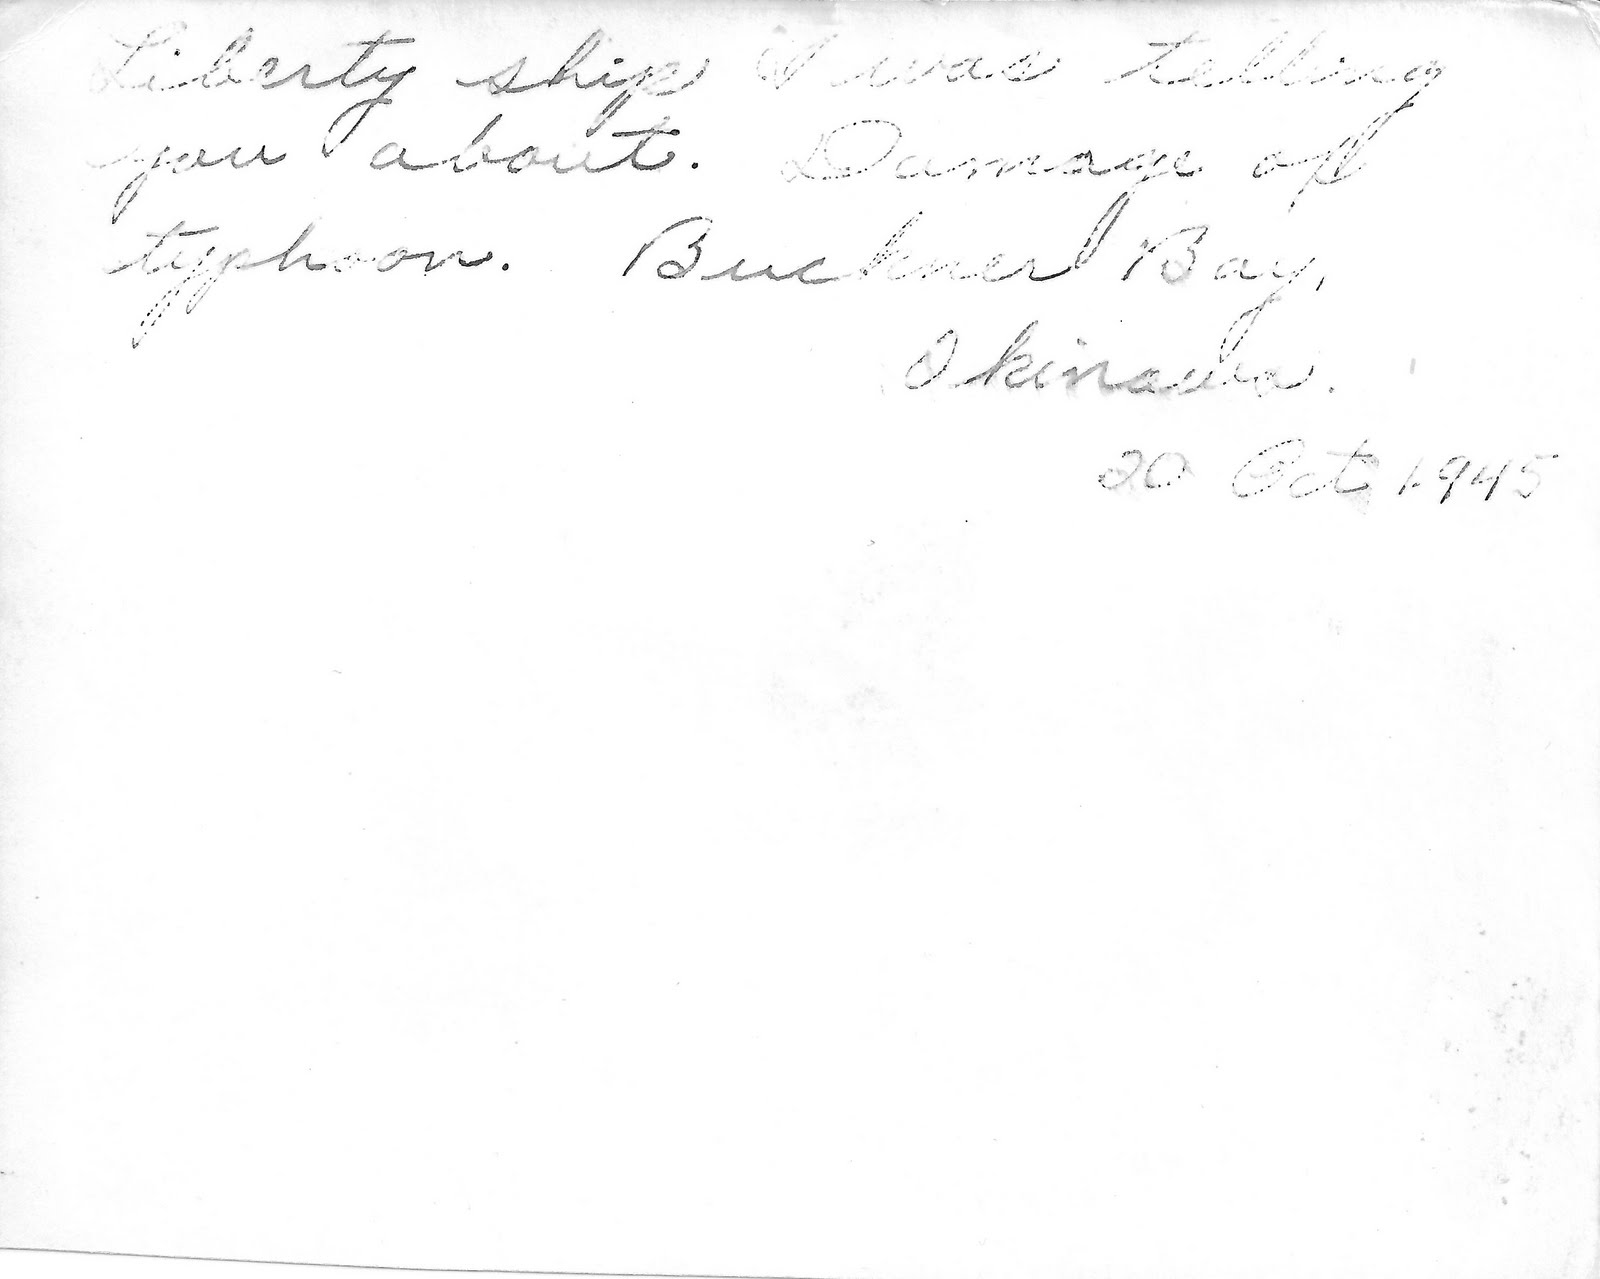 Liberty ship I was telling
you about. Damage of
typhoon. Buckner Bay,
Okinawa.
20 Oct 1945